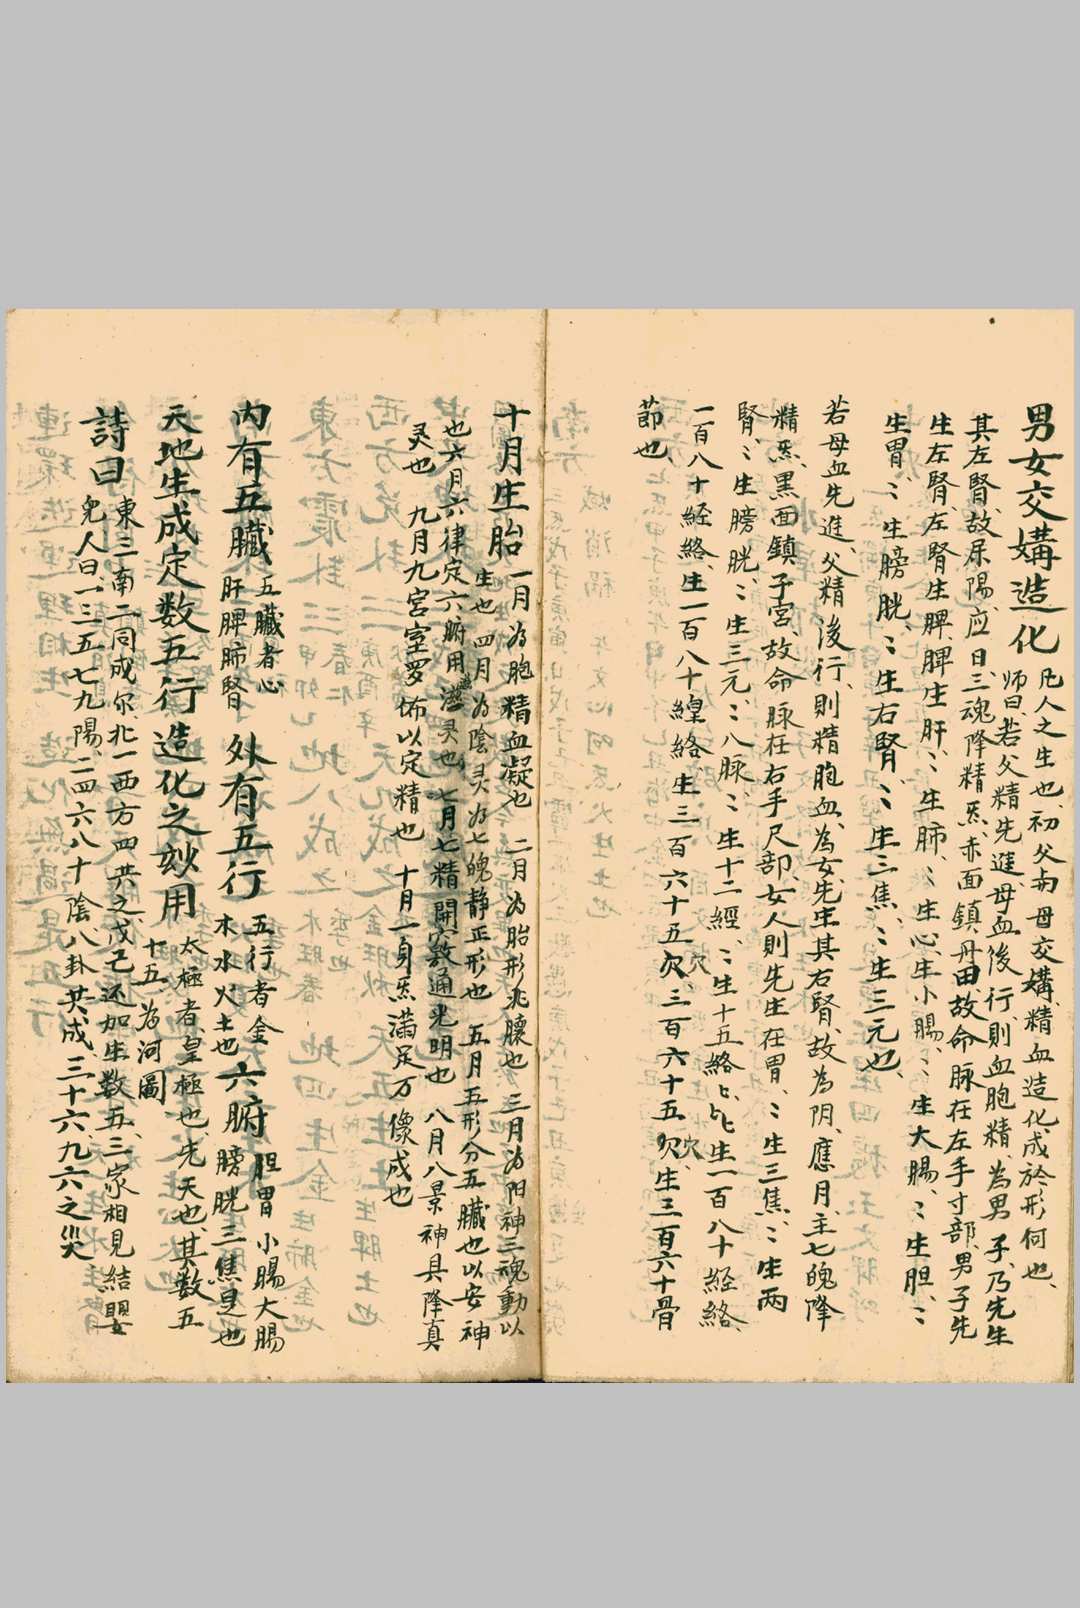 男女交媾造化
凡人之生也、初父与母交媾、精血造化、成於形何也、
師曰、若父精先進、母血後行、則血胞精、為男子、乃先生
其左腎、故屎陽、应日、三魂降精炁、赤面鎮丹田、故命脉在左手寸部、男子先
生左腎、左腎生脾、脾生肝、〻生肺、〻生心、心生小腸、〻生大腸、〻生胆、〻
生胃、〻生膀胱、〻生右腎、〻生三焦、〻生三元也、
若母血先進、父精後行、則精胞血、為女、先生其右腎、故為阴、應月、主七魄降
精炁、黒面鎮子宮、故命脉在右手尺部、女人則先生在胃、〻生三焦、〻生両
腎、〻生膀胱、〻生三元、〻八脉、〻生十二經、〻生十五絡、〻生一百八十経絡、
一百八十経絡、生一百八十緩絡、生三百六十五穴、三百六十五穴、生三百六十骨
節也、
十月生胎
一月為胞精血凝也 二月為胎形兆臕也 三月為阳神三魂動以
生也 四月為陰灵為七魄静正形也 五月五形分五臓也以安神
也 六月六律定六腑用滋灵也 七月七精開竅通光明也 八月八景神具降真
灵也 九月九宮室罗佈以定精也 十月一身炁滿足万像成也
内有五臓
五臓者心
肝脾肺腎
外有五行
五行者金
木水火土也
六腑
胆胃小腸大腸
膀胱三焦是也
天地生成定数五行造化之妙用
太極者、皇極也、先天也、其数五
十五、為河圖
詩曰
東三南二同成尔、北一西方四共之、戊己还加生数五、三家相見結嬰
兒、人曰、一三五七九陽、二四六八十陰、八卦共成、三十六、九六之災